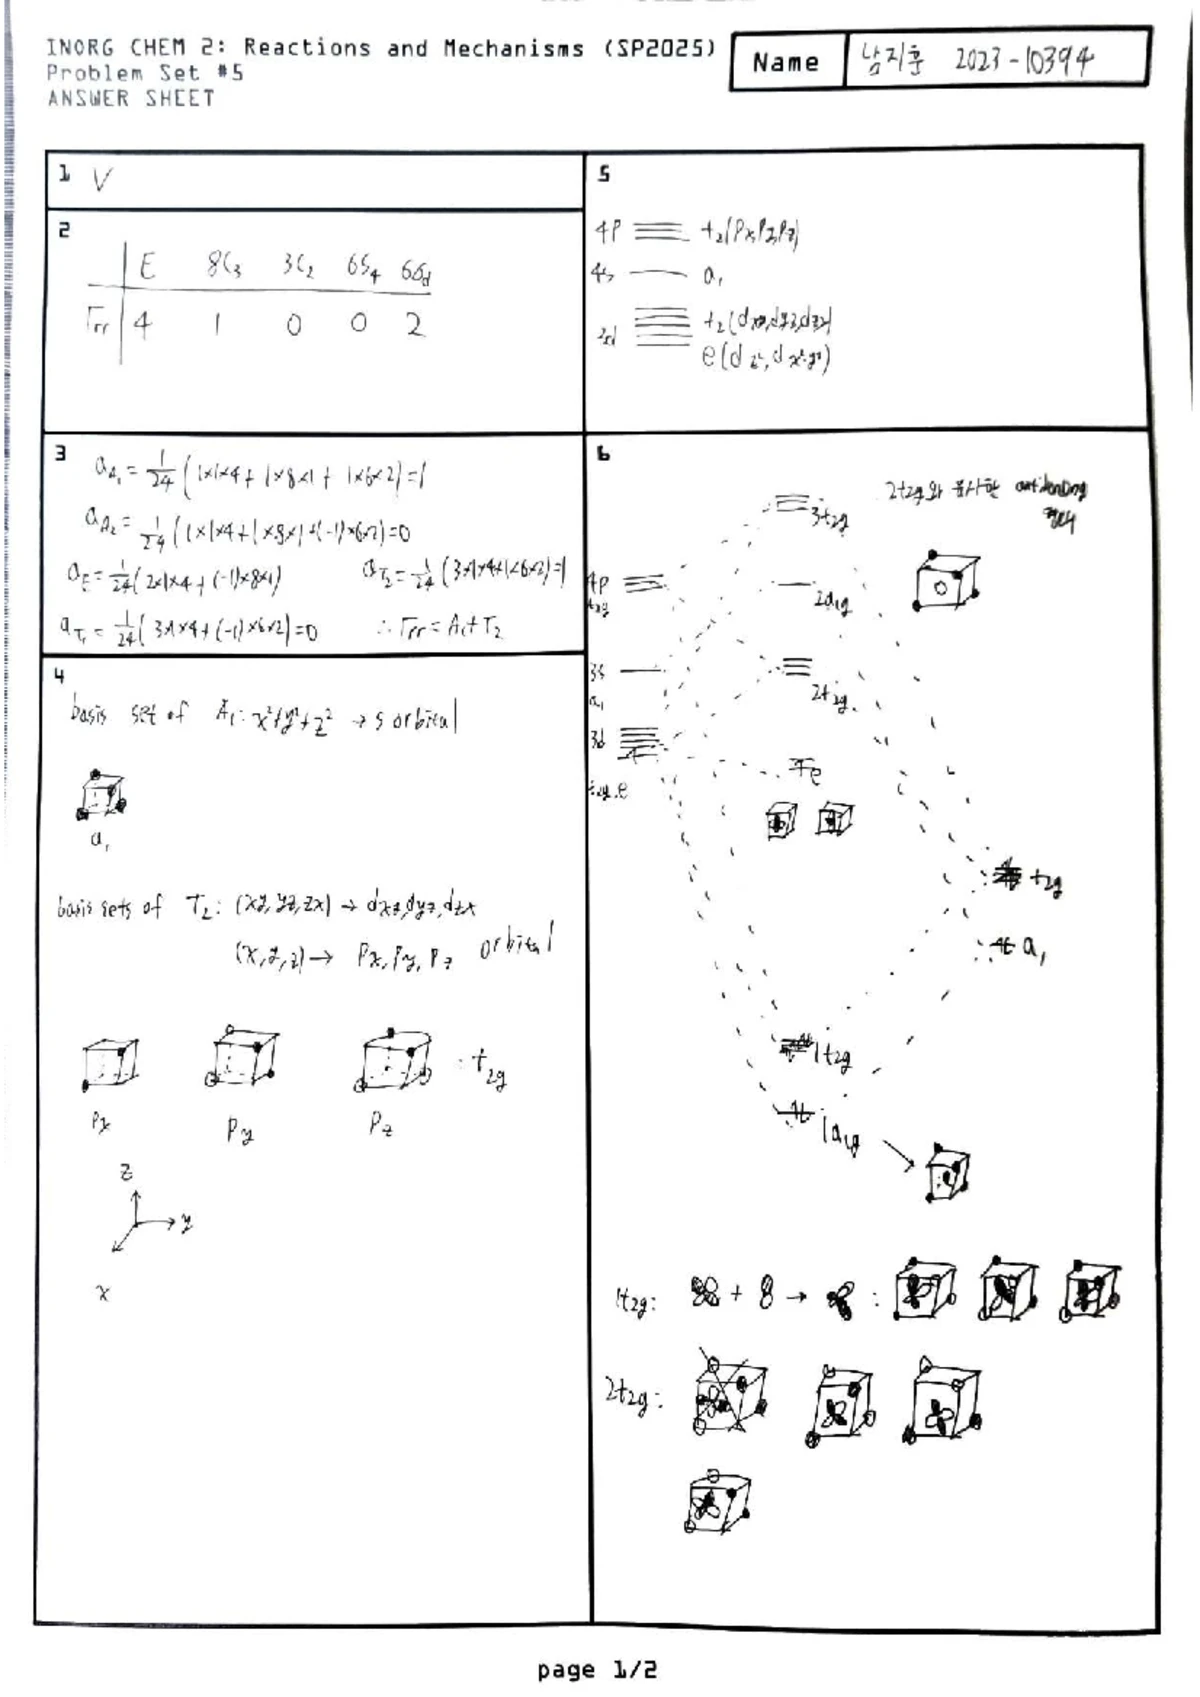 INORG CHEM 2: Reactions and Mechanisms (SP2025)
Problem Set #5
ANSWER SHEET
Name 남지훈 2023-10394
1 V
2
E 8C₃ 3C₂ 6S₄ 6σd
Γrr 4 1 0 0 2
3
a_A₁ = 1/24 (1×1×4 + 1×8×1 + 1×6×2) = 1
a_A₂ = 1/24 (1×1×4 + 1×8×1 + (-1)×6×2) = 0
a_E = 1/24 (2×1×4 + (-1)×8×1) a_T₂ = 1/24 (3×1×4 + 1×6×2) = 1
a_T₁ = 1/24 (3×1×4 + (-1)×6×2) = 0 ∴ Γrr = A₁ + T₂
4
basis set of A₁: x²+y²+z² → s orbital
a₁
basis sets of T₂: (xy, yz, zx) → dxz, dyz, dzx
(x, y, z) → Px, Py, Pz orbital
: t₂g
Px Py Pz
z
y
x
5
4P t₂(Px,Py,Pz)
4s a₁
3d t₂(dxy,dyz,dzx)
e(dz², dx²-y²)
6
2t₂g와 유사한 antibonding
3t₂g
4P
t₂g
2a₁g
3s
a₁
2t₂g
3d
e
t₂g, e
t₂g
a₁
1t₂g
1a₁g
1t₂g: + → :
2t₂g:
page 1/2